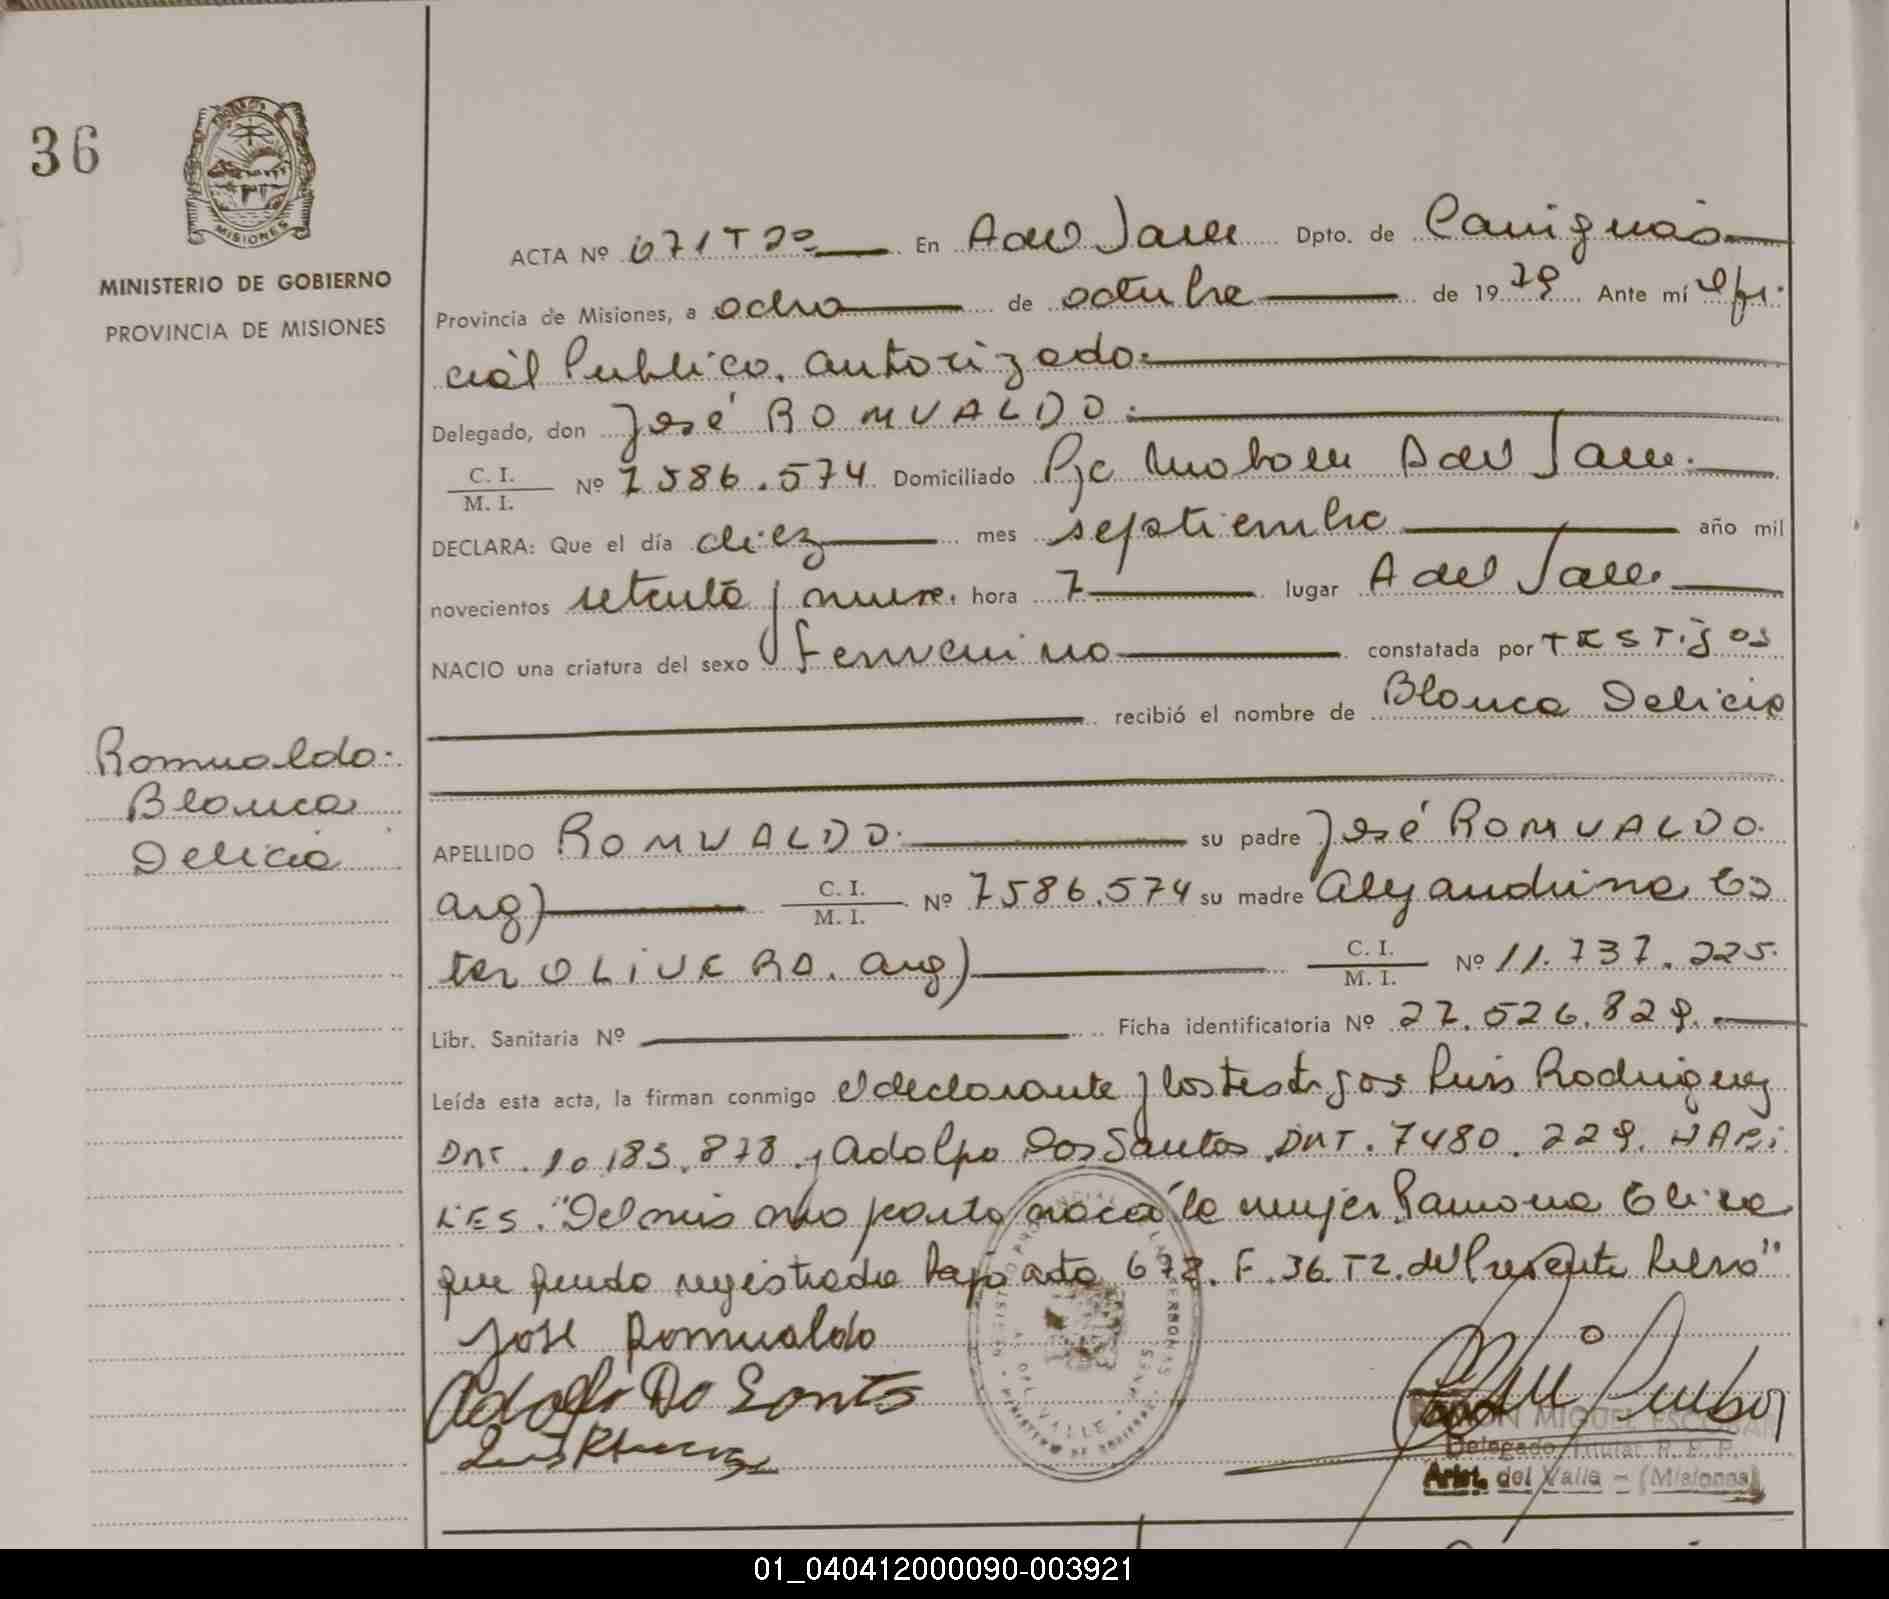 36
MISIONES
MINISTERIO DE GOBIERNO
PROVINCIA DE MISIONES
ACTA Nº 671 T 2º En A del Valle Dpto. de Cainguás
Provincia de Misiones, a ocho de octubre de 1979 Ante mí Ofi-
cial Publico. autorizado.
Delegado, don José ROMUALDO.
C. I.
M. I. Nº 7586.574 Domiciliado Pje A del Valle.
DECLARA: Que el día diez mes septiembre año mil
novecientos setenta y nueve. hora 7 lugar A del Valle.
NACIO una criatura del sexo femenino constatada por TESTigos
recibió el nombre de Blanca Delicia
Romualdo.
Blanca
Delicia
APELLIDO ROMUALDO. su padre José ROMUALDO.
arg) C. I.
M. I. Nº 7586.574 su madre Alejandrina Es
ter OLIVERA. arg) C. I.
M. I. Nº 11.737.225.
Libr. Sanitaria Nº Ficha identificatoria Nº 27.526.829.
Leída esta acta, la firman conmigo el declarante y los testigos Luis Rodriguez
DNI. 10.183.878. y Adolfo Dos Santos. DNI. 7480.229. HABI
LES. "Del mismo parto nació la mujer Ramona Elena
que quedo registrada bajo acta 672. F. 36. T2. del Presente Libro"
José Romualdo
Adolfo Do Santos
RAMON MIGUEL ESCOBAR
Delegado Titular R. P. P.
Arist. del Valle - (Misiones)
01_040412000090-003921